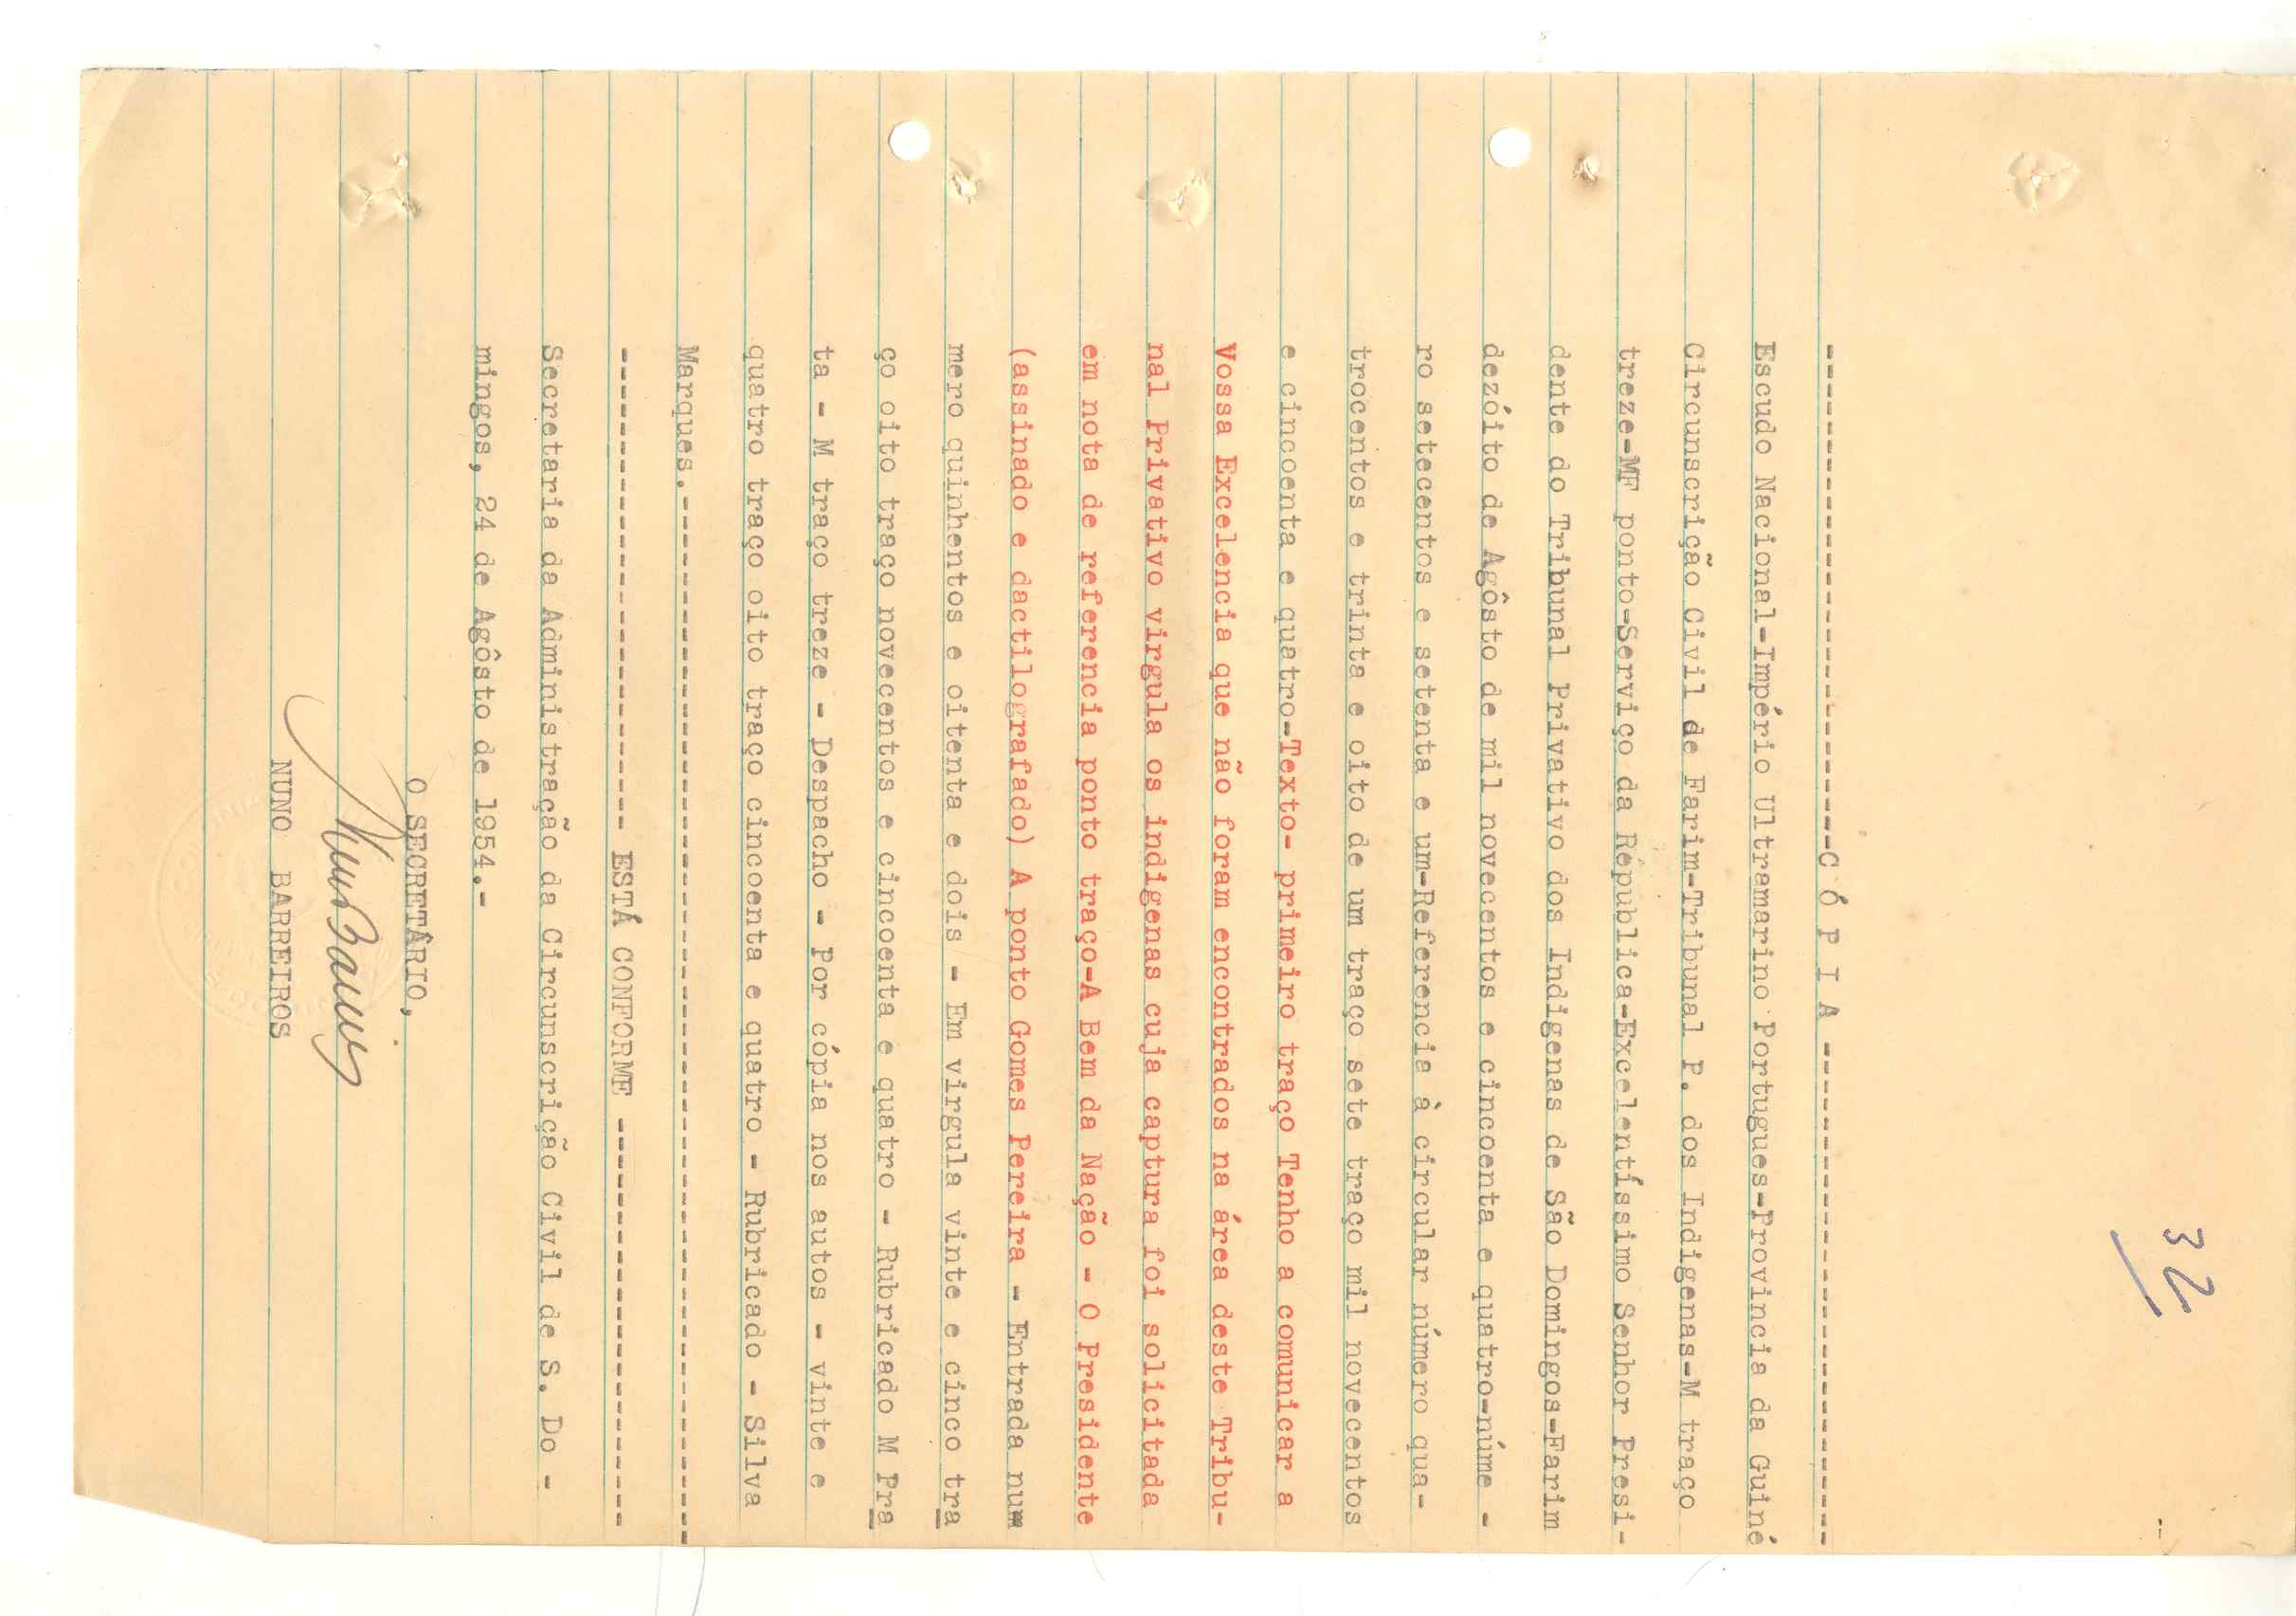 32
-----------------------------------C Ó P I A -----------------------------------
Escudo Nacional-Império Ultramarino Portugues-Provincia da Guiné
Circunscrição Civil de Farim-Tribunal P. dos Indigenas-M traço
treze-MF ponto-Serviço da República-Excelentíssimo Senhor Presi-
dente do Tribunal Privativo dos Indigenas de São Domingos-Farim
dezóito de Agôsto de mil novecentos e cincoenta e quatro-núme -
ro setecentos e setenta e um-Referencia à circular número qua-
trocentos e trinta e oito de um traço sete traço mil novecentos
e cincoenta e quatro-Texto- primeiro traço Tenho a comunicar a
Vossa Excelencia que não foram encontrados na área deste Tribu-
nal Privativo virgula os indigenas cuja captura foi solicitada
em nota de referencia ponto traço-A Bem da Nação - O Presidente
(assinado e dactilografado) A ponto Gomes Pereira - Entrada num
mero quinhentos e oitenta e dois - Em virgula vinte e cinco tra
ço oito traço novecentos e cincoenta e quatro - Rubricado M Pra
ta - M traço treze - Despacho - Por cópia nos autos - vinte e
quatro traço oito traço cincoenta e quatro - Rubricado - Silva
Marques.-----------------------------------------------------------
---------------------------------- ESTÁ CONFORME -----------------------------
Secretaria da Administração da Circunscrição Civil de S. Do -
mingos, 24 de Agôsto de 1954.-
O SECRETÁRIO,
NUNO BARREIROS